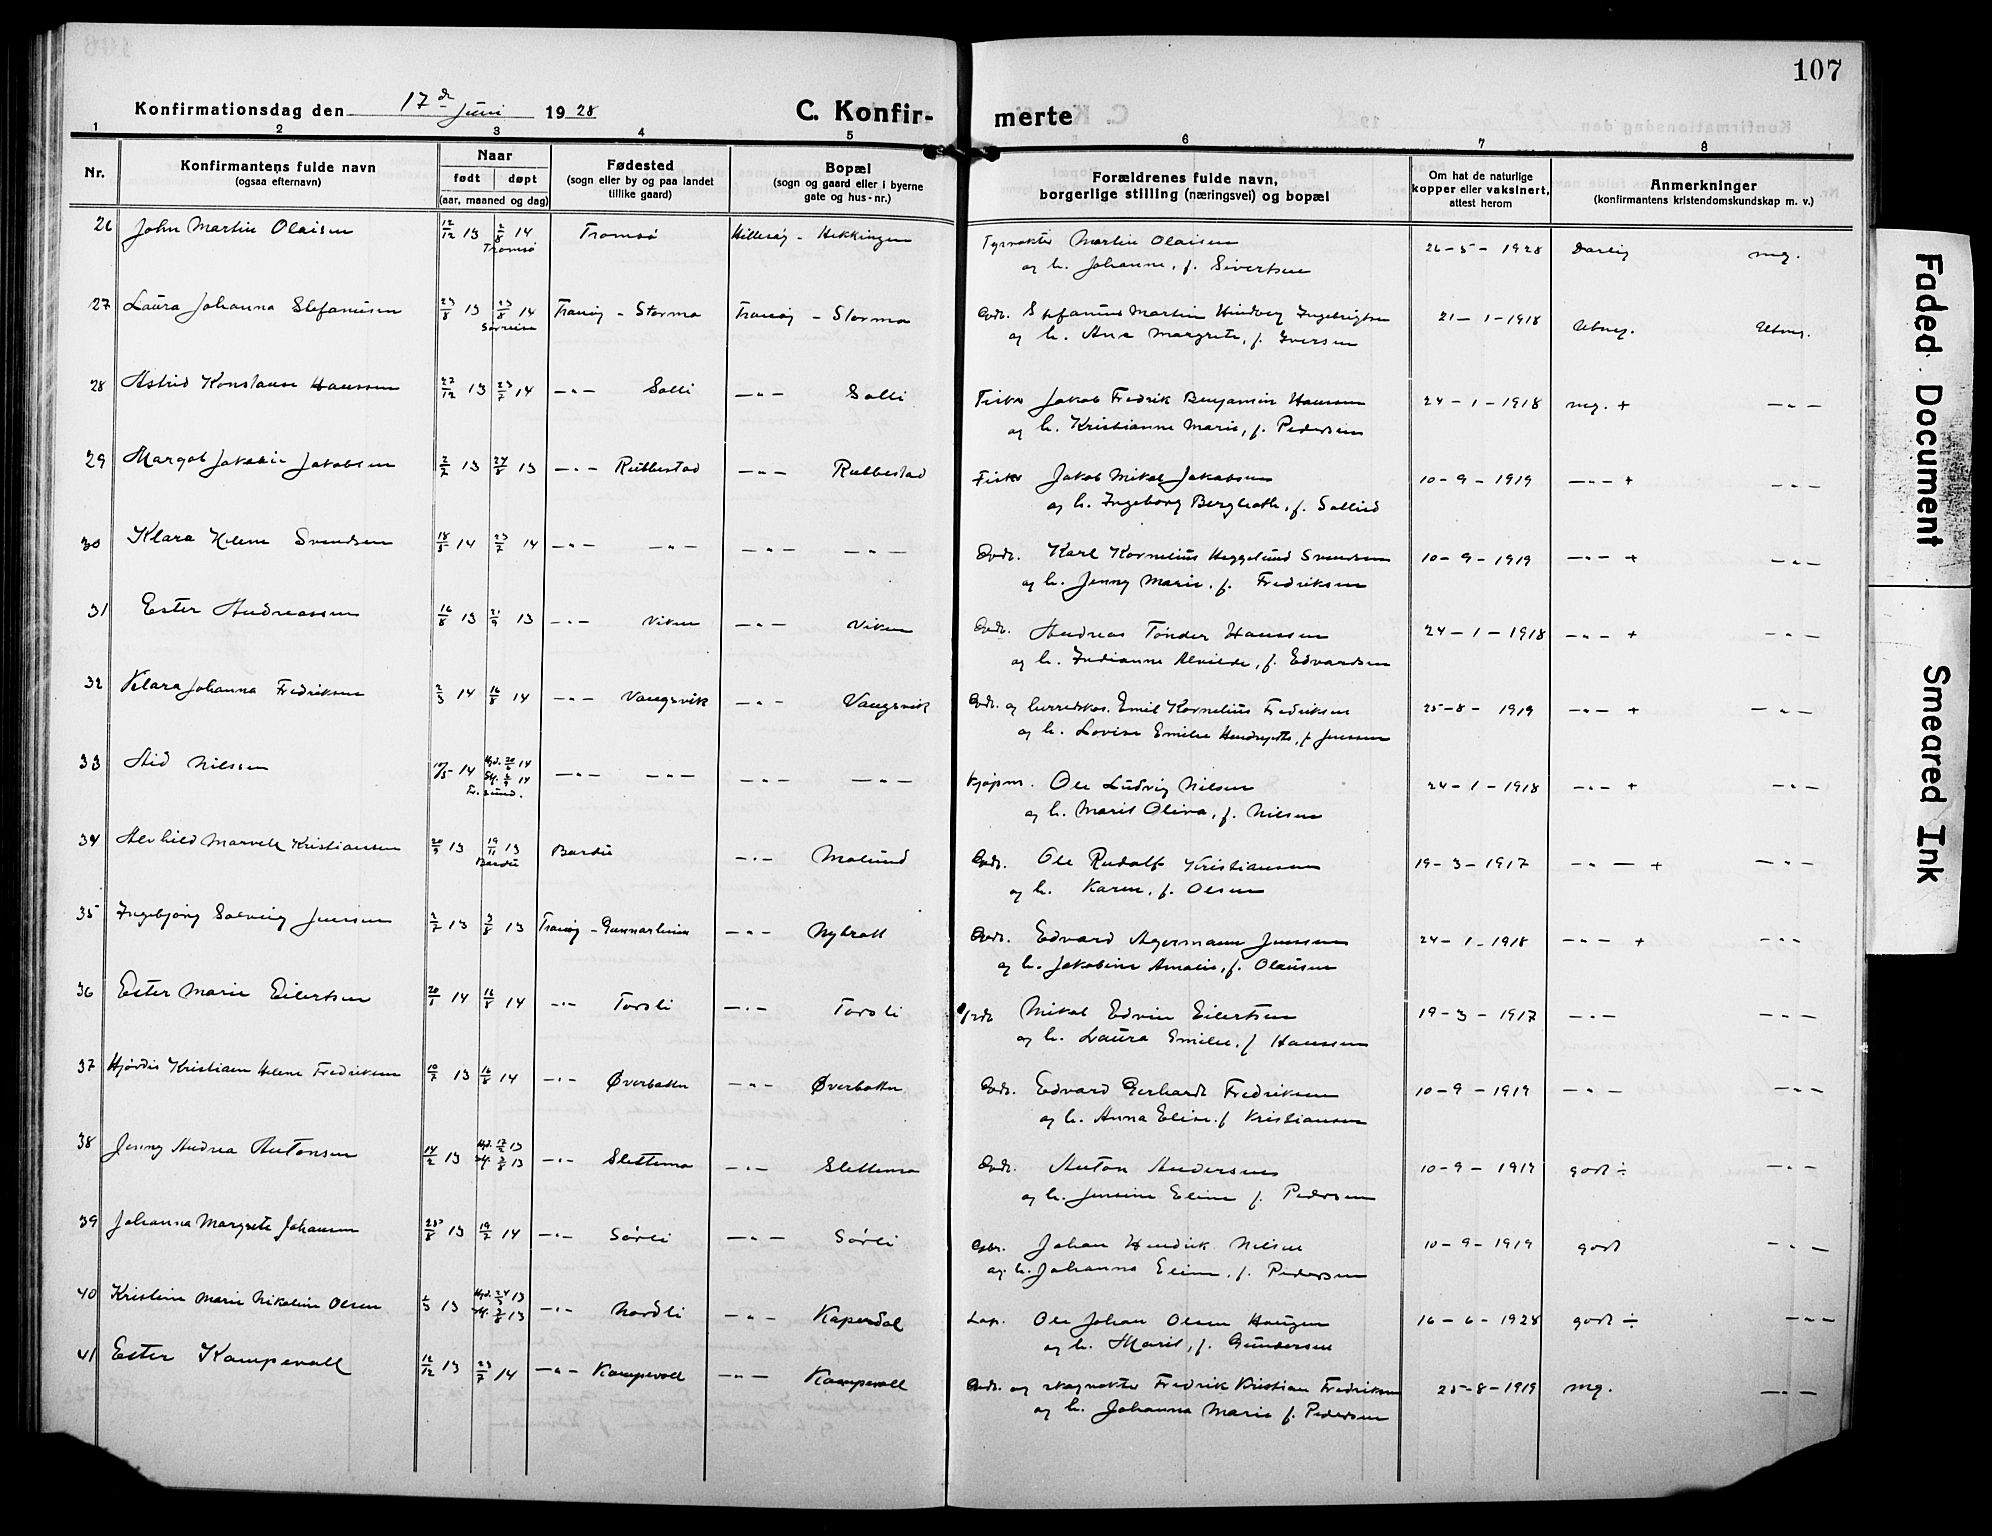 107
Konfirmationsdag den 17de Juni 1928
C. Konfir-
merte
1 2 3 4 5 6 7 8
Nr.
Konfirmantens fulde navn
(ogsaa efternavn)
Naar
født døpt
(aar, maaned og dag)
Fødested
(sogn eller by og paa landet
tillike gaard)
Bopæl
(sogn og gaard eller i byerne
gate og hus-nr.)
Forældrenes fulde navn,
borgerlige stilling (næringsvei) og bopæl
Om hat de naturlige
kopper eller vaksinert,
attest herom
Anmerkninger
(konfirmantens kristendomskundskap m. v.)
26 John Martin Olaisen 12/12 13 2/8 14 Tromsø Hillesøy - Hekkingen Fyrvokter Martin Olaisen 26-5-1928 Darlig mg.
Tromsø og h. Johanne, f. Sivertsen
27 Laura Johanna Stefanusen 23/8 13 23/8 14 Tranøy - Stormo Tranøy - Stormo Gbr. Stefanus Martin Hindberg Ingebrigtsen 21-1-1918 Utmg. Utmg.
Sørreisa og h. Ane Margrete, f. Iversen
28 Astrid Konstanse Hanssen 27/12 13 23/7 14 -"- Solli -"- Solli Fisker Jakob Fredrik Benjamin Hanssen 24-1-1918 mg. + -"-
og h. Kristianne Marie, f. Pedersen
29 Margot Jakobie Jakobsen 2/7 13 24/8 13 -"- Rubbestad -"- Rubbestad Fisker Jakob Mikal Jakobsen 10-9-1919 -"- + -"-
og h. Ingeborg Bergheth, f. Sollied
30 Klara Helene Svendsen 18/3 14 23/7 14 -"- -"- -"- -"- Gbr. Karl Kornelius Heggelund Svendsen 10-9-1919 -"- + -"-
og h. Jenny Marie, f. Fredriksen
31 Ester Andreassen 16/8 13 21/9 13 -"- Viken -"- Viken Gbr. Andreas Tønder Hanssen 24-1-1918 -"- + -"-
og h. Indianne Alvilde, f. Edvardsen
32 Klara Johanna Fredriksen 2/3 14 16/8 14 -"- Vangsvik -"- Vangsvik Gbr. og herredskas. Emil Kornelius Fredriksen 25-8-1919 -"- + -"-
og h. Lovise Emilie Hendrigette, f. Jenssen
33 Aid Nilssen 14 Hjd. 20/6 14 -"- -"- -"- -"- Kjøpm. Ole Ludvig Nilsen 24-1-1918 -"- + -"-
St. 14 og h. Marit Oliva, f. Nilsen
34 Alvhild Marvell Kristiansen 20/9 13 19/11 13 Bardu -"- Molund Gbr. Ole Rudolf Kristiansen 19-3-1917 -"- + -"-
Bardu og h. Karen, f. Olsen
35 Ingebjørg Solveig Jenssen 2/7 13 3/8 13 Tranøy - Gunnarheim -"- Nybrott Gbr. Edvard Agermann Jenssen 24-1-1918 -"- + -"-
og h. Jakobine Amalie, f. Olausen
36 Ester Marie Eilertsen 20/1 14 16/8 14 -"- Torsli -"- Torsli Gbr. Mikal Edvin Eilertsen 19-3-1917 -"- -"-
og h. Laura Emilie, f. Hanssen
37 Hjørdis Kristianne Helene Fredriksen 10/7 13 16/8 14 -"- Øverbotten -"- Øverbotten Gbr. Edvard Gerhardt Fredriksen 10-9-1919 -"- -"-
og h. Anna Elise, f. Kristiansen
38 Jenny Andrea Antonsen 14/2 13 Hjd. 17/2 13 -"- Slettemo -"- Slettemo Gbr. Anton Andersen 10-9-1919 godt ÷ -"-
St. 3/8 13 og h. Jensine Eline f. Pedersen
39 Johanna Margrete Johansen 25/8 13 19/7 14 -"- Sørli -"- Sørli Gbr. Johan Hendrik Nilsen 10-9-1919 godt -"-
og h. Johanna Eline, f. Pedersen
40 Kristine Marie Nikoline Olsen 1/3 13 Hjd. 24/3 13 -"- Nordli -"- Kaperdal Lap. Ole Johan Olsen Haugen 16-6-1928 godt ÷ -"-
St. 3/8 13 og h. Marit, f. Gundersen
41 Ester Kampevoll 12/12 13 23/7 14 -"- Kampevoll -"- Kampevoll Gbr. og skogvokter Fredrik Kristian Fredriksen 25-8-1919 mg. -"-
og h. Johanna Marie f. Pedersen
Faded Document
Smeared Ink